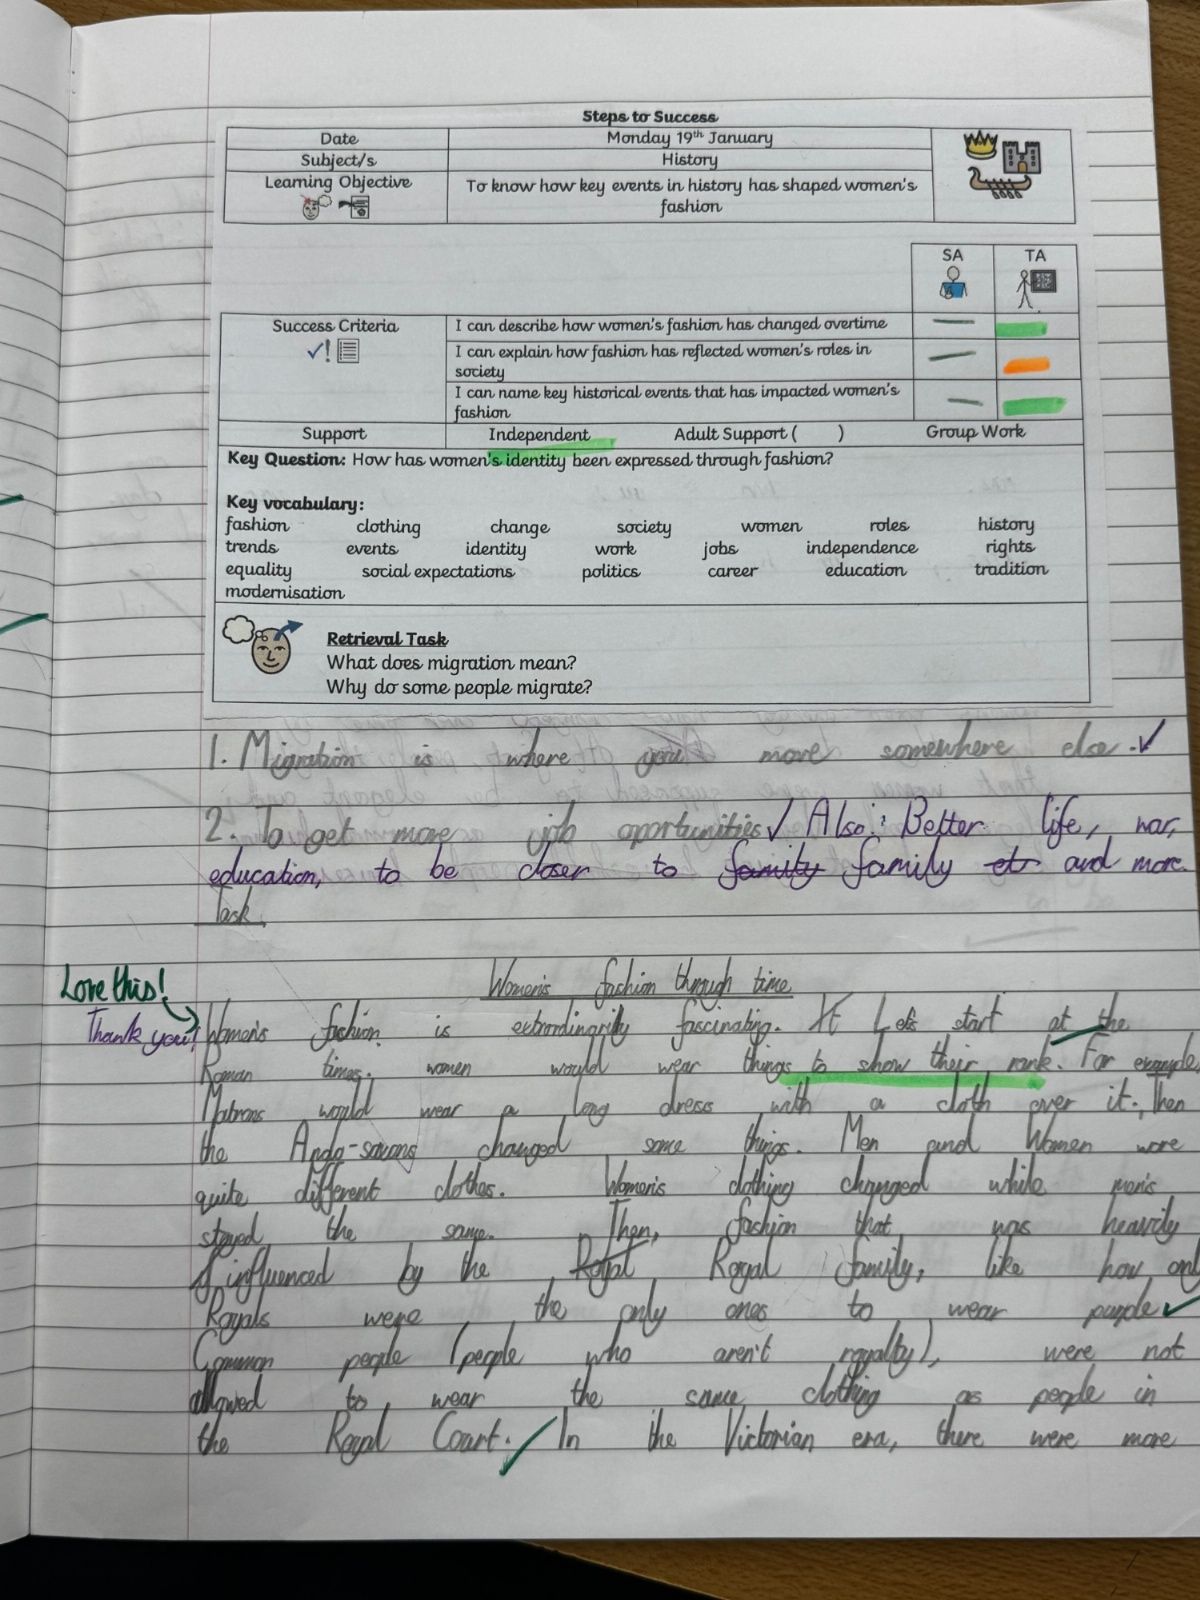 Steps to Success
Date Monday 19th January
Subject/s History
Learning Objective To know how key events in history has shaped women's
fashion
SA TA
Success Criteria I can describe how women's fashion has changed overtime
I can explain how fashion has reflected women's roles in
society
I can name key historical events that has impacted women's
fashion
Support Independent Adult Support ( ) Group Work
Key Question: How has women's identity been expressed through fashion?
Key vocabulary:
fashion clothing change society women roles history
trends events identity work jobs independence rights
equality social expectations politics career education tradition
modernisation
Retrieval Task
What does migration mean?
Why do some people migrate?
1. Migration is where you move somewhere else.
2. To get more job oportunities Also: Better life, war,
education, to be closer to family family etc and more.
Task.
Love this!
Thank you!
Women's fashion through time
Women's fashion is extrordinarily fascinating. It Let's start at the
Roman times. women would wear things to show their rank. For example,
Matrons would wear a long dress with a cloth over it. Then
the Anglo-saxons changed some things. Men and Women wore
quite different clothes. Women's clothing changed while men's
stayed the same. Then, fashion that was heavily
influenced by the Royal Royal family, like how only
Royals were the only ones to wear purple
Common people (people who aren't royalty), were not
allowed to wear the same clothing as people in
the Royal Court. In the Victorian era, there were more